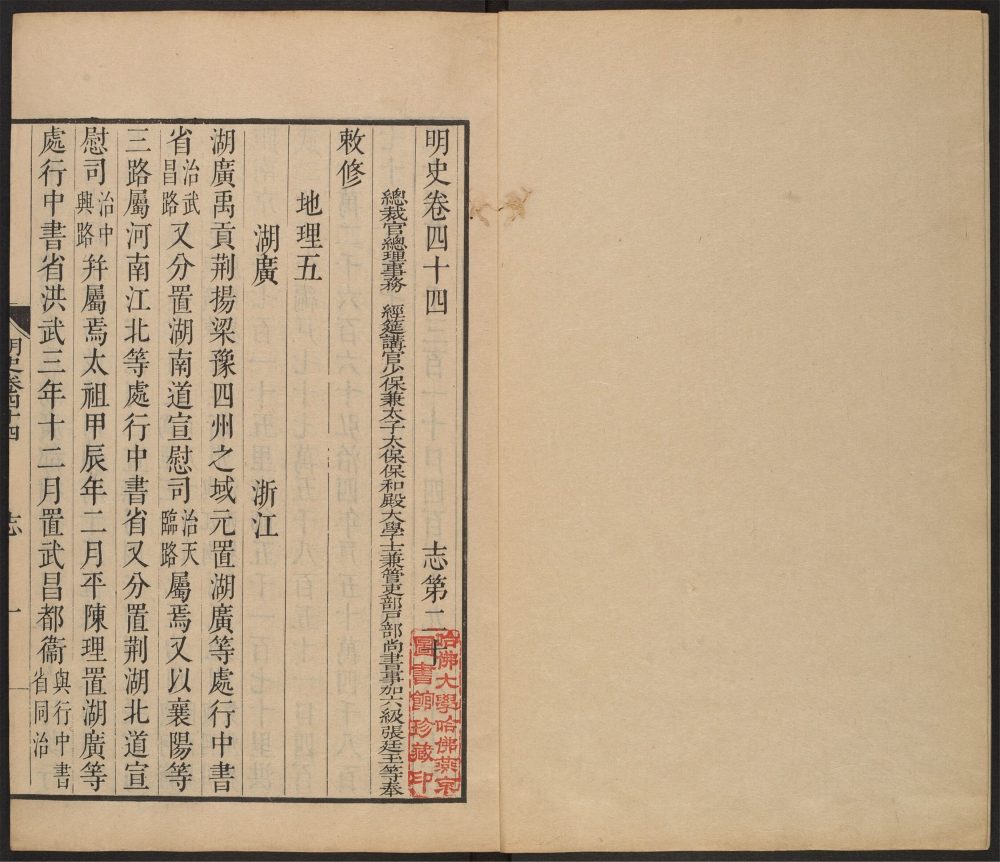 明史卷四十四 志第二十
總裁官總理事務 經筵講官少保兼太子太保保和殿大學士兼管吏部戶部尚書事加六級張廷玉等奉
敕修
地理五
湖廣 浙江
湖廣禹貢荆揚梁豫四州之域元置湖廣等處行中書
省治武昌路又分置湖南道宣慰司治天臨路屬焉又以襄陽等
三路屬河南江北等處行中書省又分置荆湖北道宣
慰司治中興路幷屬焉太祖甲辰年二月平陳理置湖廣等
處行中書省洪武三年十二月置武昌都衞與行中書省同治
明史卷四十四 志 一
哈佛大學哈佛燕京
圖書館珍藏印